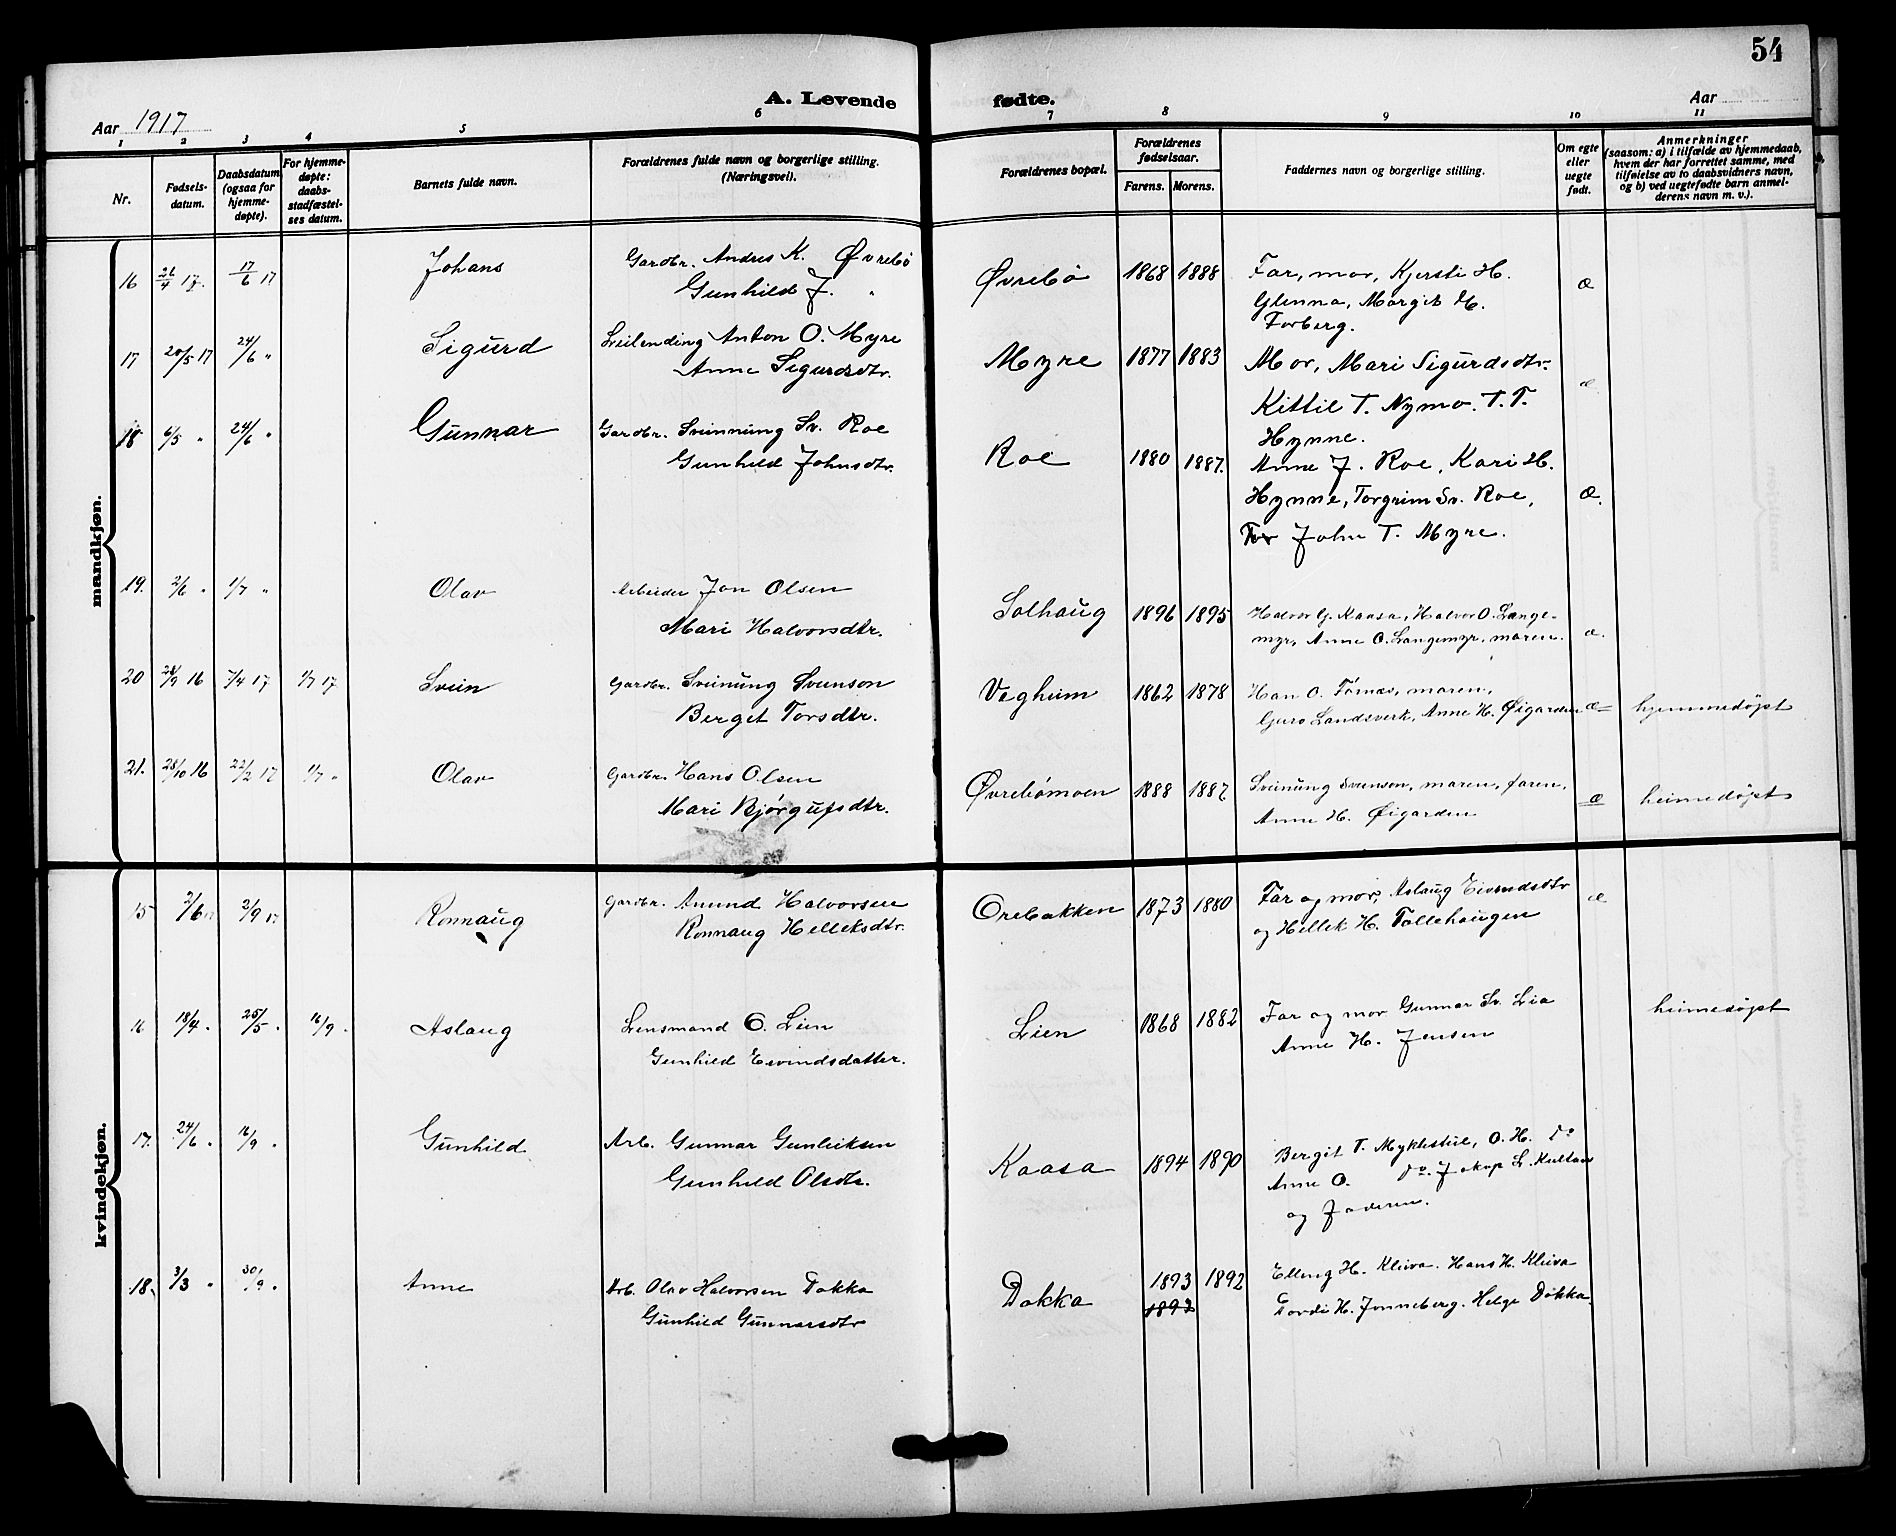 54
A. Levende fødte.
Aar 1917
Aar
1 2 3 4 5 6 7 8 9 10 11
Nr.
Fødsels-
datum.
Daabsdatum
(ogsaa for
hjemme-
døpte).
For hjemme-
døpte:
daabs-
stadfæstel-
ses datum.
Barnets fulde navn.
Forældrenes fulde navn og borgerlige stilling.
(Næringsvei).
Forældrenes bopæl.
Forældrenes
fødselsaar.
Farens. Morens.
Faddernes navn og borgerlige stilling.
Om egte
eller
uegte
født.
Anmerkninger
(saasom: a) i tilfælde av hjemmedaab,
hvem der har forrettet samme, med
tilføielse av to daabsvidners navn,
og b) ved uegtefødte barn anmel-
derens navn m. v.).
mandkjøn.
16 26/4 17. 17/6 17 Johans Gardbr. Andres K. Øvrebö Øvrebö 1868 1888 Far, mor, Kjersti H. æ
Gunhild J. " Glenna, Margit H.
Forberg.
17 20/5 17 24/6 " Sigurd Leilending Anton O. Myre Myre 1877 1883 Mor, Mari Sigurdsdtr. æ
Anne Sigurdsdtr. Kittil T. Nymo. T. T.
Hynne.
18 6/5 " 24/6 " Gunnar Gardbr. Sveinung Sv. Roe Roe 1880 1887. Anne J. Roe, Kari H. æ.
Gunhild Johnsdtr. Hynne, Torgrim Sv. Roe,
John T. Myre.
19. 2/6 " 1/7 " Olav Arbeider Jon Olsen Solhaug 1896 1895 Halvor G. Kaasa, Halvor O. Lange- æ.
Mari Halvorsdtr. myr, Anne O. Langemyr, moren.
20 28/9 16 7/4 17 1/7 17 Svein Gardbr. Sveinung Svenson Vegheim 1862 1878 Han O. Fornæs, moren, æ hjemmedøpt
Berget Torsdtr. Guro Landsverk, Anne H. Øigarden
21. 28/10 16 22/2 17 1/7 " Olav Gardbr. Hans Olsen Øvrebömoen 1888 1887 Sveinung Svenson, moren, faren, æ heimedøpt
Mari Bjørgufsdtr. Anne H. Øigarden
kvindekjøn.
15 2/6 17 2/9 17 Ronnaug Gardbr. Amund Halvorsen Orebakken 1873 1880 Far og mor, Aslaug Eivendsdtr æ
Ronnaug Helleksdtr. og Hellek H. Tollehaugen
16 18/4 " 25/5 " 16/9 " Aslaug Lensmand O. Lien Lien 1868 1882 Far og mor Gunnar Sv. Lia heimedøpt
Gunhild Eivindsdatter. Anne H. Jensen
17. 24/6 " 16/9 " Gunhild Arb. Gunnar Gunleiksen Kaasa 1894 1890 Bergit T. Myklestul, O. H. Do
Gunhild Olsdtr. Anne O. Do. Jakop L.
og faderen.
18. 3/3 " 30/9 " Anne Arb. Olav Halvorsen Dokka Dokka 1893 1892 Elling H. Kleiva. Hans H. Kleiva
Gunhild Gunnarsdtr 1892 Tordi H. Jønneberg. Helge Dokka.